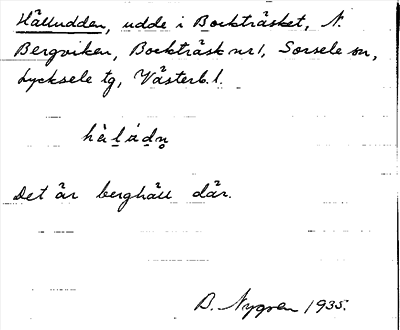 Hälludden, udde i Bockträsket, N.
Bergviken, Bockträsk nr 1, Sorsele sn,
Lycksele tg, Västerb. l.
Det är berghäll där.
B. Nygren 1935.